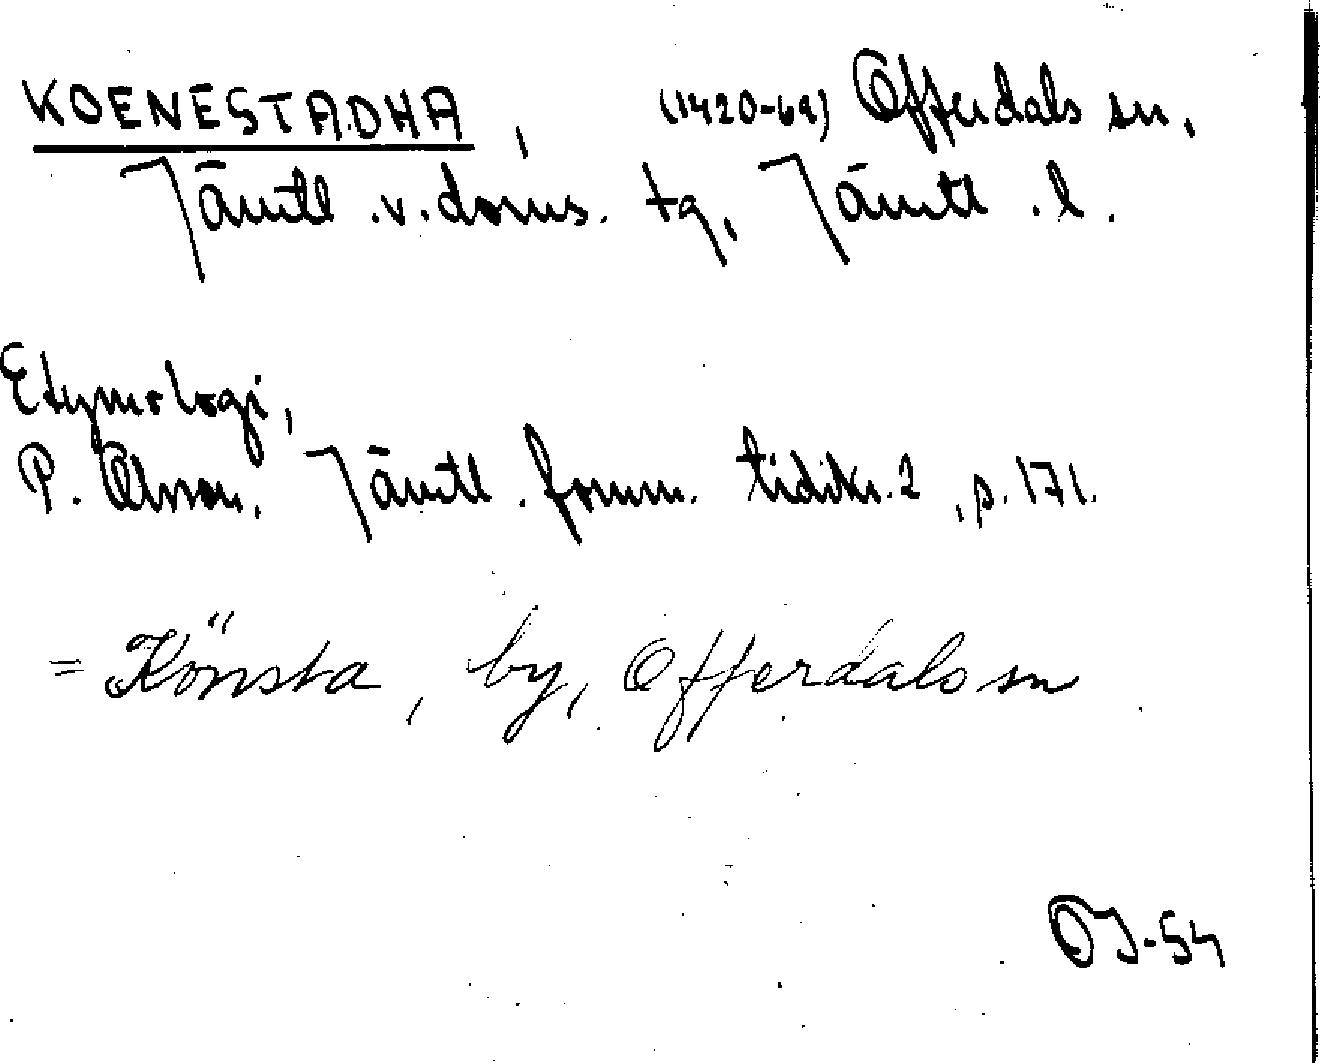 KOENESTADHA, (1420-69) Offerdals sn,
Jämtl.v.doms. tg, Jämtl.l.
Etymologi,
P. Olsson, Jämtl. fornm. tidskr. 2, p. 171.
= Könsta, by, Offerdals sn
OJ-54